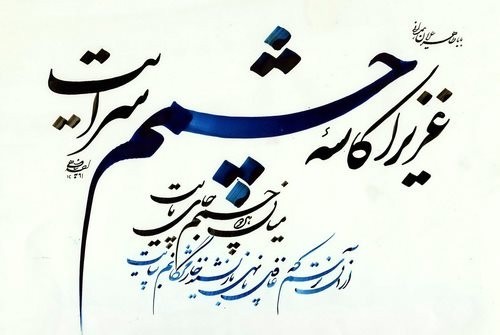 باباطاهر عریان همدانی
عزیزا کاسهٔ چشمم سرایت
میان هر دو چشمم جای پایت
از آن ترسم که غافل پا نهی باز نشیند خار مژگانم بپایت